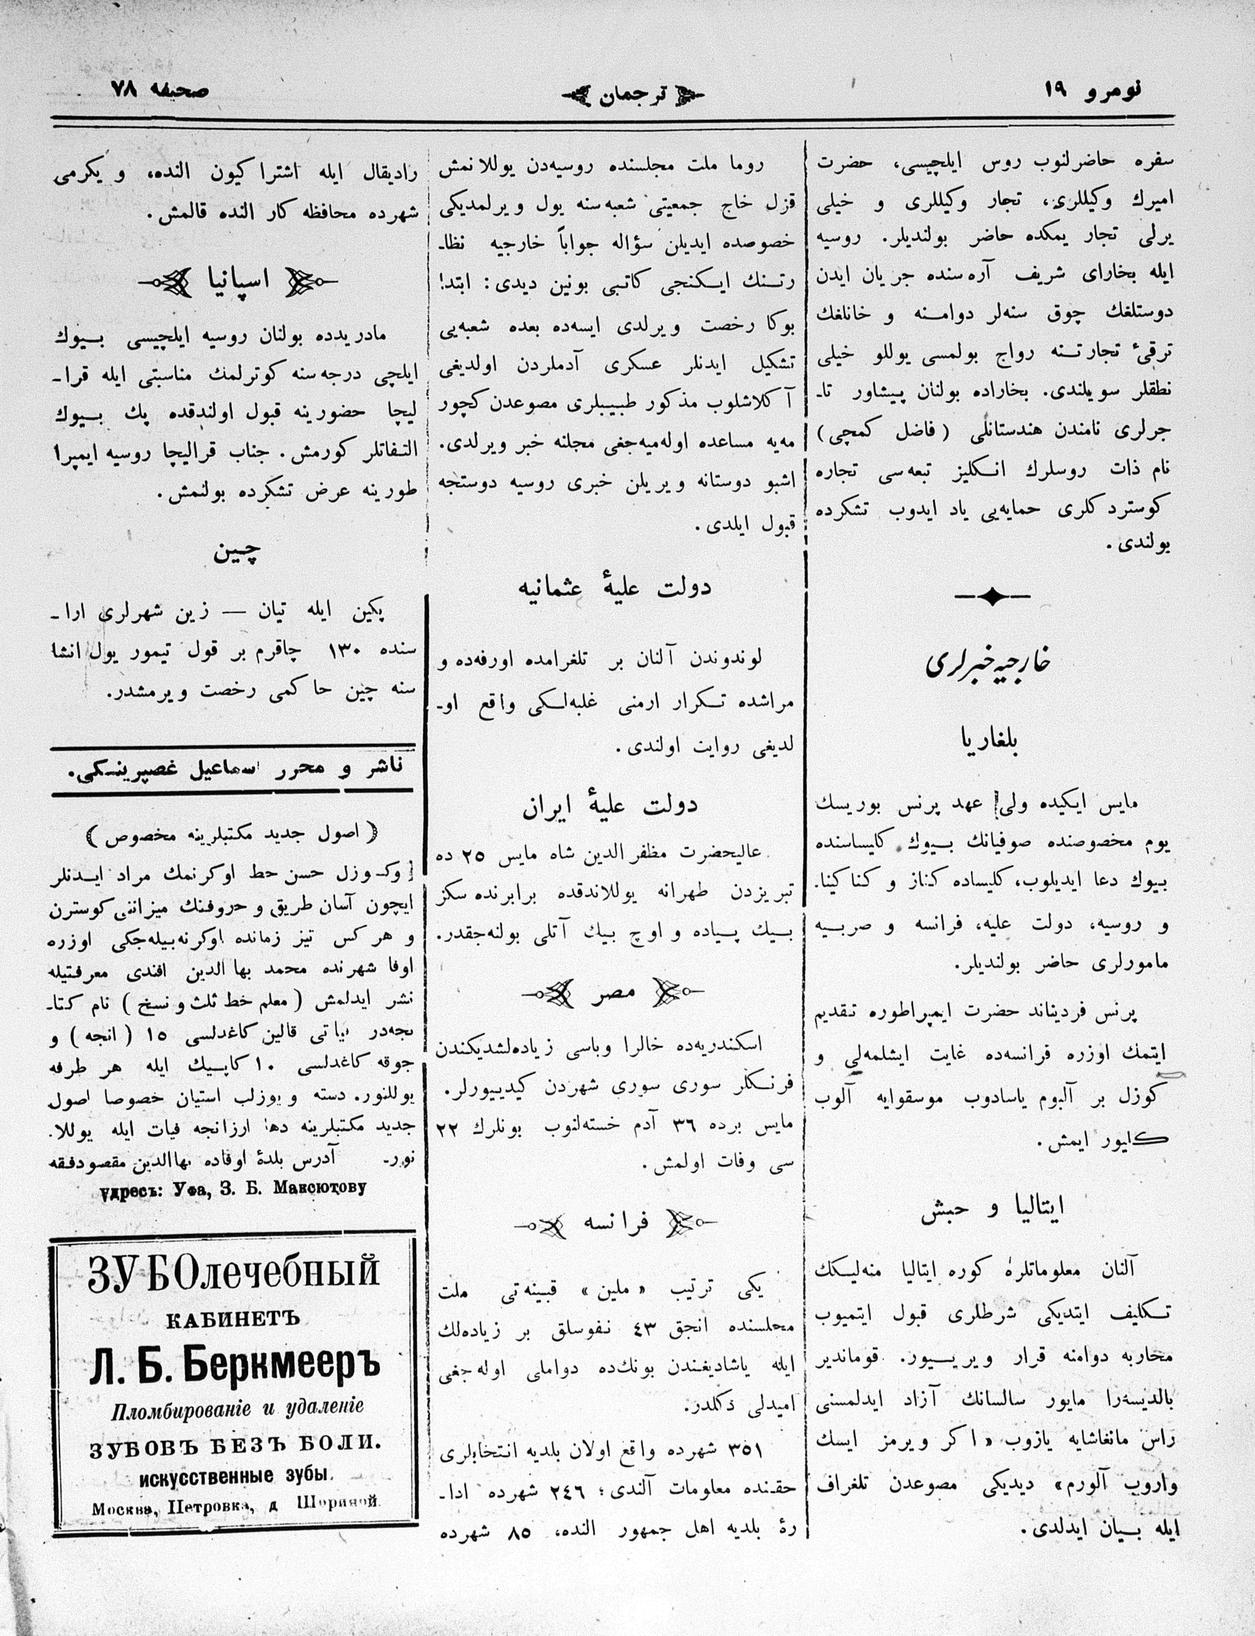 نومرو ١٩
ترجمان
صحيفه ٧٨
سفره حاضرلنوب روس ايلچيسى، حضرت
اميرك وكيللرى، تجار وكيللرى و خيلى
يرلى تجار يمكده حاضر بولنديلر. روسيه
ايله بخاراى شريف آره‌سنده جريان ايدن
دوستلغك چوق سنه‌لر دوامنه و خانلغك
ترقئ تجارتنه رواج بولمسى يوللو خيلى
نطقلر سويلندى. بخاراده بولنان پيشاور تا-
جرلرى نامندن هندستانلى (فاضل كمچى)
نام ذات روسلرك انكليز تبعه‌سى تجاره
كوستردكلرى حمايه‌يى ياد ايدوب تشكرده
بولندى.
خارجيه خبرلرى
بلغاريا
مايس ايكيده ولى عهد پرنس بوريسك
يوم مخصوصنده صوفيانك بيوك كليساسنده
بيوك دعا ايديلوب، كليساده كناز و كناكينا
و روسيه، دولت عليه، فرانسه و صربيه
مامورلرى حاضر بولنديلر.
پرنس فرديناند حضرت ايمپراطوره تقديم
ايتمك اوزره فرانسه‌ده غايت ايشلمه‌لى و
كوزل بر آلبوم ياسادوب موسقوايه آلوب
كليور ايمش.
ايتاليا و حبش
آلنان معلوماتلره كوره ايتاليا منه‌ليكك
تكليف ايتديكى شرطلرى قبول ايتميوب
محاربه دوامنه قرار ويريسيور. قوماندير
بالديسه‌را مايور سالسانك آزاد ايدلمسنى
راس مانغاشايه يازوب «اكر ويرمز ايسك
واروب آلورم» ديديكى مصوعدن تلغراف
ايله بيان ايدلدى.
روما ملت مجلسنده روسيه‌دن يوللانمش
قزل خاج جمعيتى شعبه‌سنه يول ويرلمديكى
خصوصده ايديلن سؤاله جواباً خارجيه نظا-
رتنك ايكنجى كاتبى بونين ديدى: ابتدا
بوكا رخصت ويرلدى ايسه‌ده بعده شعبه‌يى
تشكيل ايدنلر عسكرى آدملردن اولديغى
آكلاشلوب مذكور طبيبلرى مصوعدن كچور
مه‌يه مساعده اوله‌ميه‌جغى مجلنه خبر ويرلدى.
اشبو دوستانه ويريلن خبرى روسيه دوستجه
قبول ايلدى.
دولت عليۀ عثمانيه
لوندوندن آلنان بر تلغرامده اورفه‌ده و
مراشده تكرار ارمنى غلبه‌لكى واقع او-
لديغى روايت اولندى.
دولت عليۀ ايران
عاليحضرت مظفرالدين شاه مايس ٢٥ ده
تبريزدن طهرانه يوللاندقده برابرنده سكز
بيك پياده و اوچ بيك آتلى بولنه‌جقدر.
مصر
اسكندريه‌ده خالرا وباسى زياده‌لشديكندن
فرنكلر سورى سورى شهردن كيدييورلر.
مايس برده ٣٦ آدم خسته‌لنوب بونلرك ٢٢
سى وفات اولمش.
فرانسه
يكى ترتيب «ملين» قبينه‌تى ملت
مجلسنده انجق ٤٣ نفوسلق بر زياده‌لك
ايله ياشاديغندن بونكده دواملى اوله‌جغى
اميدلى دكلدر.
٣٥١ شهرده واقع اولان بلديه انتخابلرى
حقنده معلومات آلندى؛ ٢٤٦ شهرده ادا-
رۀ بلديه اهل جمهور النده، ٨٥ شهرده
راديقال ايله اشتراكيون النده، و يكرمى
شهرده محافظه‌كار النده قالمش.
اسپانيا
مادريدده بولنان روسيه ايلچيسى بيوك
ايلچى درجه‌سنه كوترلمك مناسبتى ايله قرا-
ليچا حضورينه قبول اولندقده پك بيوك
التفاتلر كورمش. جناب قراليچا روسيه ايمپرا
طورينه عرض تشكرده بولنمش.
چين
پكين ايله تيان — زين شهرلرى ارا-
سنده ١٣٠ چاقرم بر قول تيمور يول انشا
سنه چين حاكمى رخصت ويرمشدر.
ناشر و محرر اسماعيل غصپرينسكى.
(اصول جديد مكتبلرينه مخصوص)
كوزل حسن خط اوكرنمك مراد ايدنلر
ايچون آسان طريق و حروفنك ميزاننى كوسترن
و هر كس تيز زمانده اوكرنه‌بيله‌جكى اوزره
اوفا شهرنده محمد بهاالدين افندى معرفتيله
نشر ايدلمش (معلم خط ثلث و نسخ) نام كتا-
بجه‌در بهاتى قالين كاغدلسى ١٥ (انجه) و
جوقه كاغدلسى ١٠ كاپيك ايله هر طرفه
يوللنور. دسته و يوزلب استيان خصوصا اصول
جديد مكتبلرينه دها ارزانجه فيات ايله يوللا-
نور- آدرس بلدۀ اوفاده بهاالدين مقصودفقه
адресъ: Уфа, З. Б. Максютову
ЗУБОлечебный
КАБИНЕТЪ
Л. Б. Беркмееръ
Пломбированіе и удаленіе
ЗУБОВЪ БЕЗЪ БОЛИ.
искусственные зубы.
Москва, Петровка, д Шориной